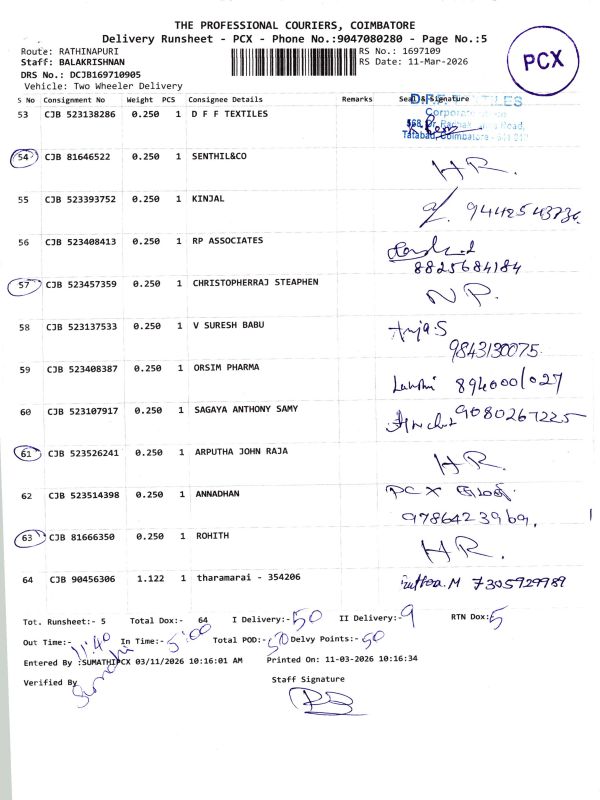 THE PROFESSIONAL COURIERS, COIMBATORE
Delivery Runsheet - PCX - Phone No.:9047080280 - Page No.:5
Route: RATHINAPURI
RS No.: 1697109
Staff: BALAKRISHNAN
RS Date: 11-Mar-2026
DRS No.: DCJB169710905
Vehicle: Two Wheeler Delivery
PCX
S No Consignment No Weight PCS Consignee Details Remarks Seal & Signature
53 CJB 523138286 0.250 1 D F F TEXTILES
D.F.F. TEXTILES
54 CJB 81646522 0.250 1 SENTHIL&CO H R.
55 CJB 523393752 0.250 1 KINJAL
56 CJB 523408413 0.250 1 RP ASSOCIATES
8825684184
57 CJB 523457359 0.250 1 CHRISTOPHERRAJ STEAPHEN N P.
58 CJB 523137533 0.250 1 V SURESH BABU Anja.S
9843130075.
59 CJB 523408387 0.250 1 ORSIM PHARMA
60 CJB 523107917 0.250 1 SAGAYA ANTHONY SAMY 9080267225
61 CJB 523526241 0.250 1 ARPUTHA JOHN RAJA H R.
62 CJB 523514398 0.250 1 ANNADHAN PCX
9786423969.
63 CJB 81666350 0.250 1 ROHITH H R.
64 CJB 90456306 1.122 1 tharamarai - 354206 7305929989
Tot. Runsheet:- 5 Total Dox:- 64 I Delivery:- 50 II Delivery:- 9 RTN Dox: 5
Out Time:- 11:40 In Time:- 5:00 Total POD:- 50 Delvy Points:- 50
Entered By :SUMATHIPCX 03/11/2026 10:16:01 AM Printed On: 11-03-2026 10:16:34
Verified By Sumathi
Staff Signature